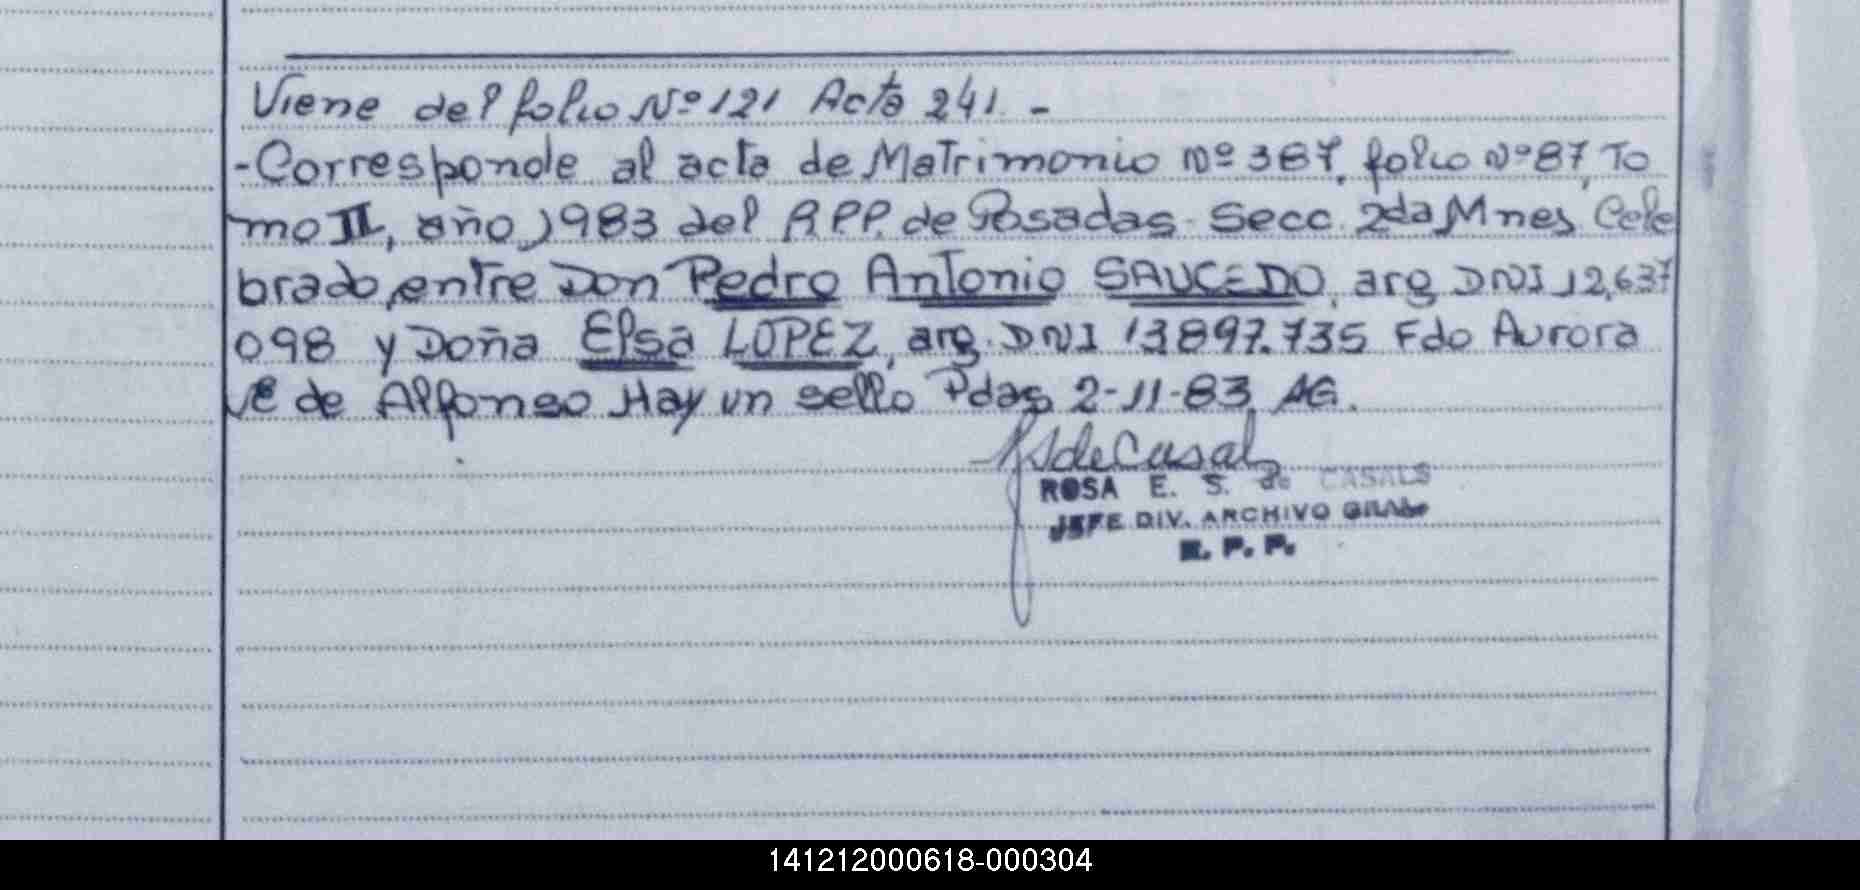 Viene del folio Nº 121 Acta 241.-
-Corresponde al acta de Matrimonio Nº 387, folio Nº 87, To
mo II, año 1983 del R.P.P. de Posadas - Secc. 2da Mnes, Cele
brado, entre Don Pedro Antonio SAUCEDO, arg DNI 12,637
098 y Doña Elsa LOPEZ, arg. DNI 13897.735 Fdo Aurora
de Alfonso Hay un sello Pdas 2-11-83, AG.
SdeCasals
ROSA E. S. de CASALS
JEFE DIV. ARCHIVO GRAL
R. P. P.
141212000618-000304